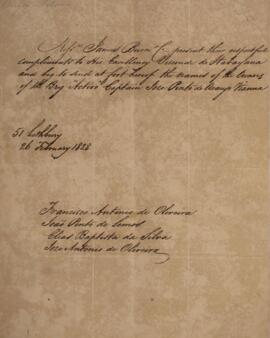 Messrs James Burn & Co present their respectful
compliments to His Excellency Viscount de Itabayana
and beg to send at foot hereof the names of the Owners
of the Brig "Activo" Captain Joze Pinto de Araujo Vianna
51 Lothbury
26 February 1828
Francisco Antonio de Oliveira
João Pinto de Lemos
Elias Baptista da Silva
Joze Antonio de Oliveira